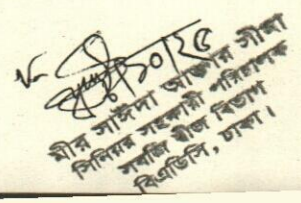 ১০/২৫
মীর সাঈদা আক্তার সীমা
সিনিয়র সহকারী পরিচালক
সবজি বীজ বিভাগ
বিএডিসি, ঢাকা।